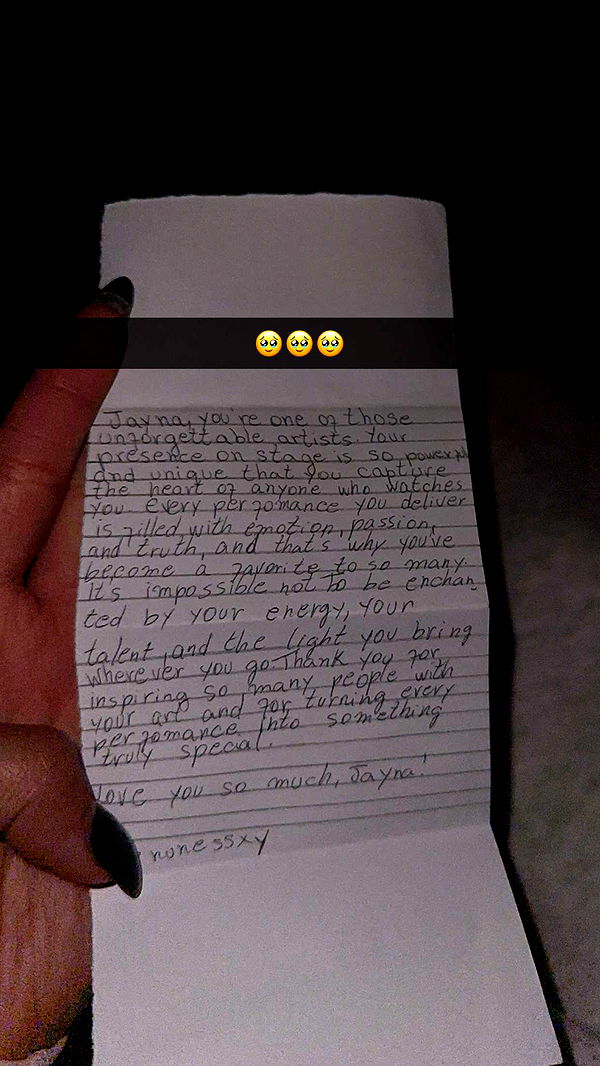 🥹🥹🥹
Jayna, you're one of those
unforgettable artists. Your
presence on stage is so powerful
and unique that you capture
the heart of anyone who watches
you. Every performance you deliver
is filled with emotion, passion,
and truth, and that's why you've
become a favorite to so many.
It's impossible not to be enchan
ted by your energy, your
talent, and the light you bring
wherever you go. Thank you for
inspiring so many people with
your art and for turning every
performance into something
truly special.
love you so much, Jayna!
nonessxy